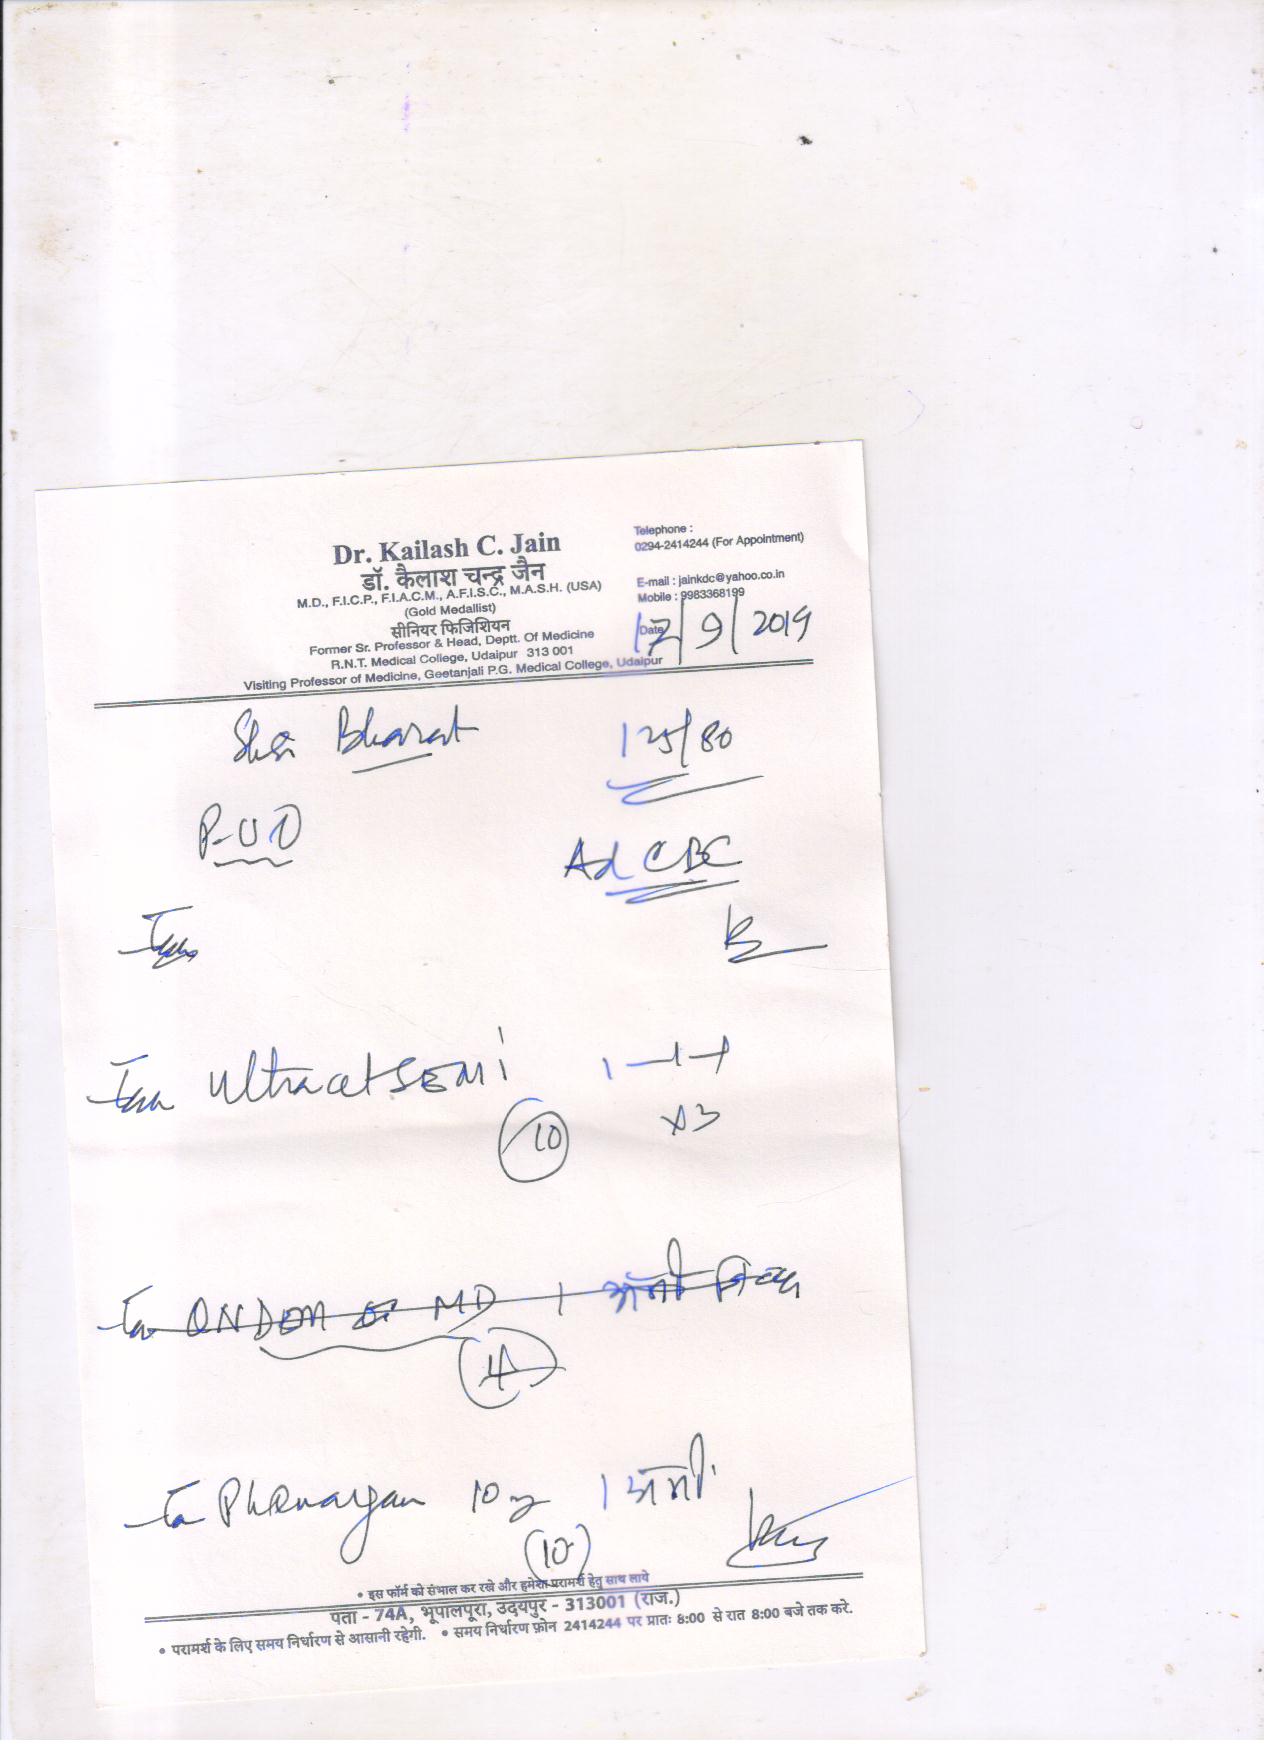 Dr. Kailash C. Jain
डॉ. कैलाश चन्द्र जैन
M.D., F.I.C.P., F.I.A.C.M., A.F.I.S.C., M.A.S.H. (USA)
(Gold Medallist)
सीनियर फिजिशियन
Former Sr. Professor & Head, Deptt. Of Medicine
R.N.T. Medical College, Udaipur 313 001
Visiting Professor of Medicine, Geetanjali P.G. Medical College, Udaipur
Telephone :
0294-2414244 (For Appointment)
E-mail : jainkdc@yahoo.co.in
Mobile : 9983368199
Date 12/9/2019
Bharat 125/80
P-U O
Ad CBC
Ultracet SEMI 1-1-1
10 x3
MD 1
4
Phenargan 10 1
10
• इस फॉर्म को संभाल कर रखे और हमेशा परामर्श हेतु साथ लाये
पता - 74A, भूपालपुरा, उदयपुर - 313001 (राज.)
• परामर्श के लिए समय निर्धारण से आसानी रहेगी. • समय निर्धारण फ़ोन 2414244 पर प्रातः 8:00 से रात 8:00 बजे तक करे.